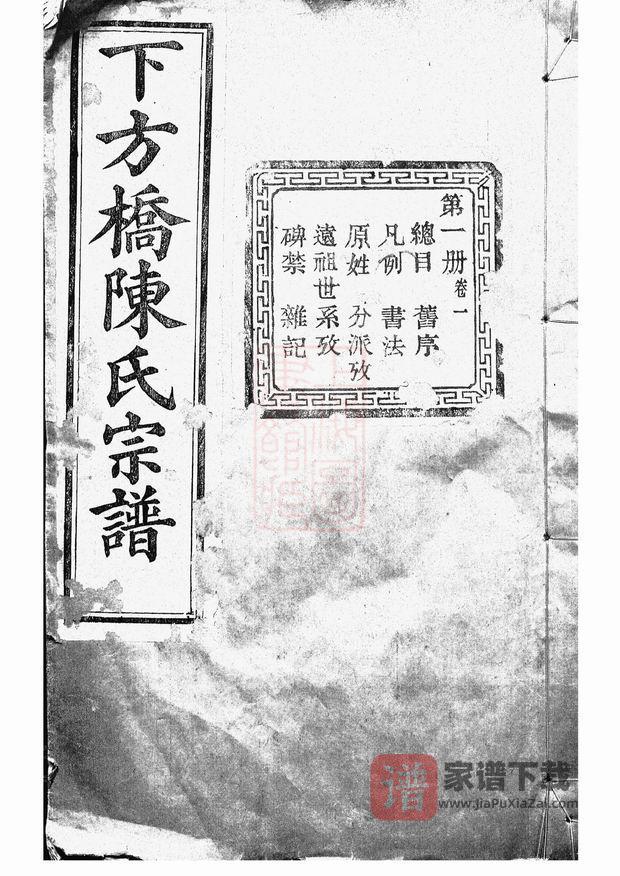 下方橋陳氏宗譜
第一册 卷一
總目 舊序
凡例 書法
原姓 分派攷
遠祖世系攷
碑禁 雜記
譜
家谱下载
www.JiaPuXiaZai.com